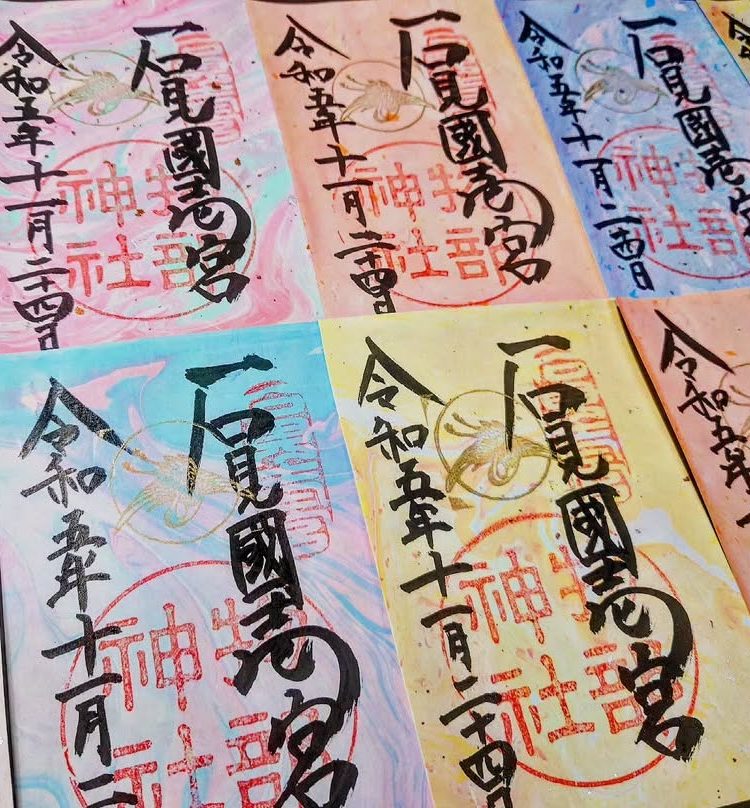 石見國壱宮
物部
神社
令和五年十一月二十四日
石見國壱宮
物部
神社
令和五年十一月二十四日
石見國壱宮
物部
神社
令和五年十一月二十四日
石見國壱宮
物部
神社
令和五年十一月二
石見國壱宮
物部
神社
令和五年十一月二十四日
令和五年